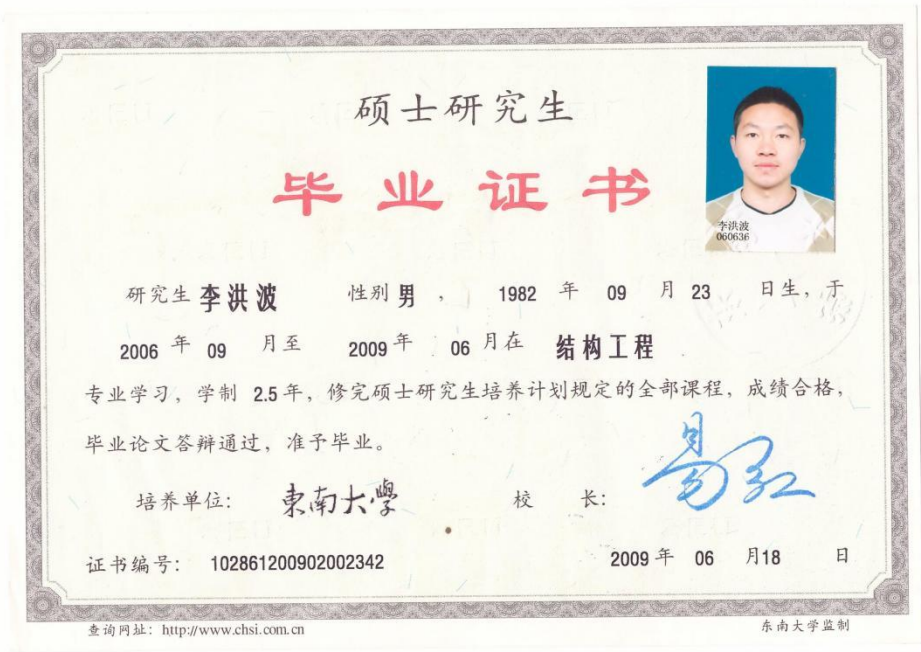 硕士研究生
毕业证书
李洪波
060636
研究生 李洪波 性别 男 ， 1982 年 09 月 23 日生，于
2006 年 09 月至 2009 年 06 月在 结构工程
专业学习，学制 2.5 年，修完硕士研究生培养计划规定的全部课程，成绩合格，
毕业论文答辩通过，准予毕业。
培养单位： 東南大學 校 长： 易红
证书编号： 102861200902002342 2009 年 06 月 18 日
查询网址：http://www.chsi.com.cn 东南大学监制